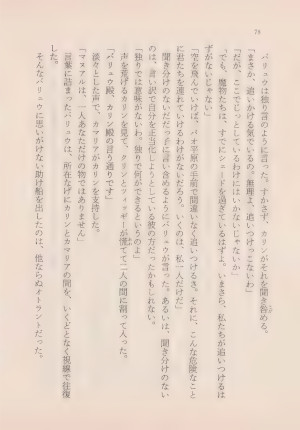 74
バリュウは独り言のように言った。すかさず、カリンがそれを聞き咎める。
「まさか、追いかける気でいるの？　無理よ、追いつけっこないわ」
「だが、ここでじっとしているわけにはいかないじゃないか」
「でも、魔物たちは、すでにシェードを過ぎているはずよ。いまさら、私たちが追いつけるは
ずがないじゃない」
「空を飛んでいけば、パオ平原の手前で間違いなく追いつけるさ。それに、こんな危険なこと
に君たちを連れていけるわけがないだろう。いくのは、私一人だけだ」
聞き分けのないだだっ子に言い含めるようにバリュウが言った。あるいは、聞き分けのない
のは、言い訳で自分を正当化しようとしている彼の方だったかもしれない。
「独りでは意味がないわ。独りで何ができるというのよ」
声を荒げるカリンを見て、クリンとツィッギーが慌てて二人の間に割って入った。
「バリュウ殿、カリン殿の言う通りです」
淡々とした声で、カマリアがカリンを支持した。
「マヌアルは、一人あなただけの物ではありません」
言葉に詰まったバリュウは、所在なげにカリンとカマリアの間を、いくどとなく視線で往復
した。
そんなバリュウに思いがけない助け船を出したのは、他ならぬオトラントだった。